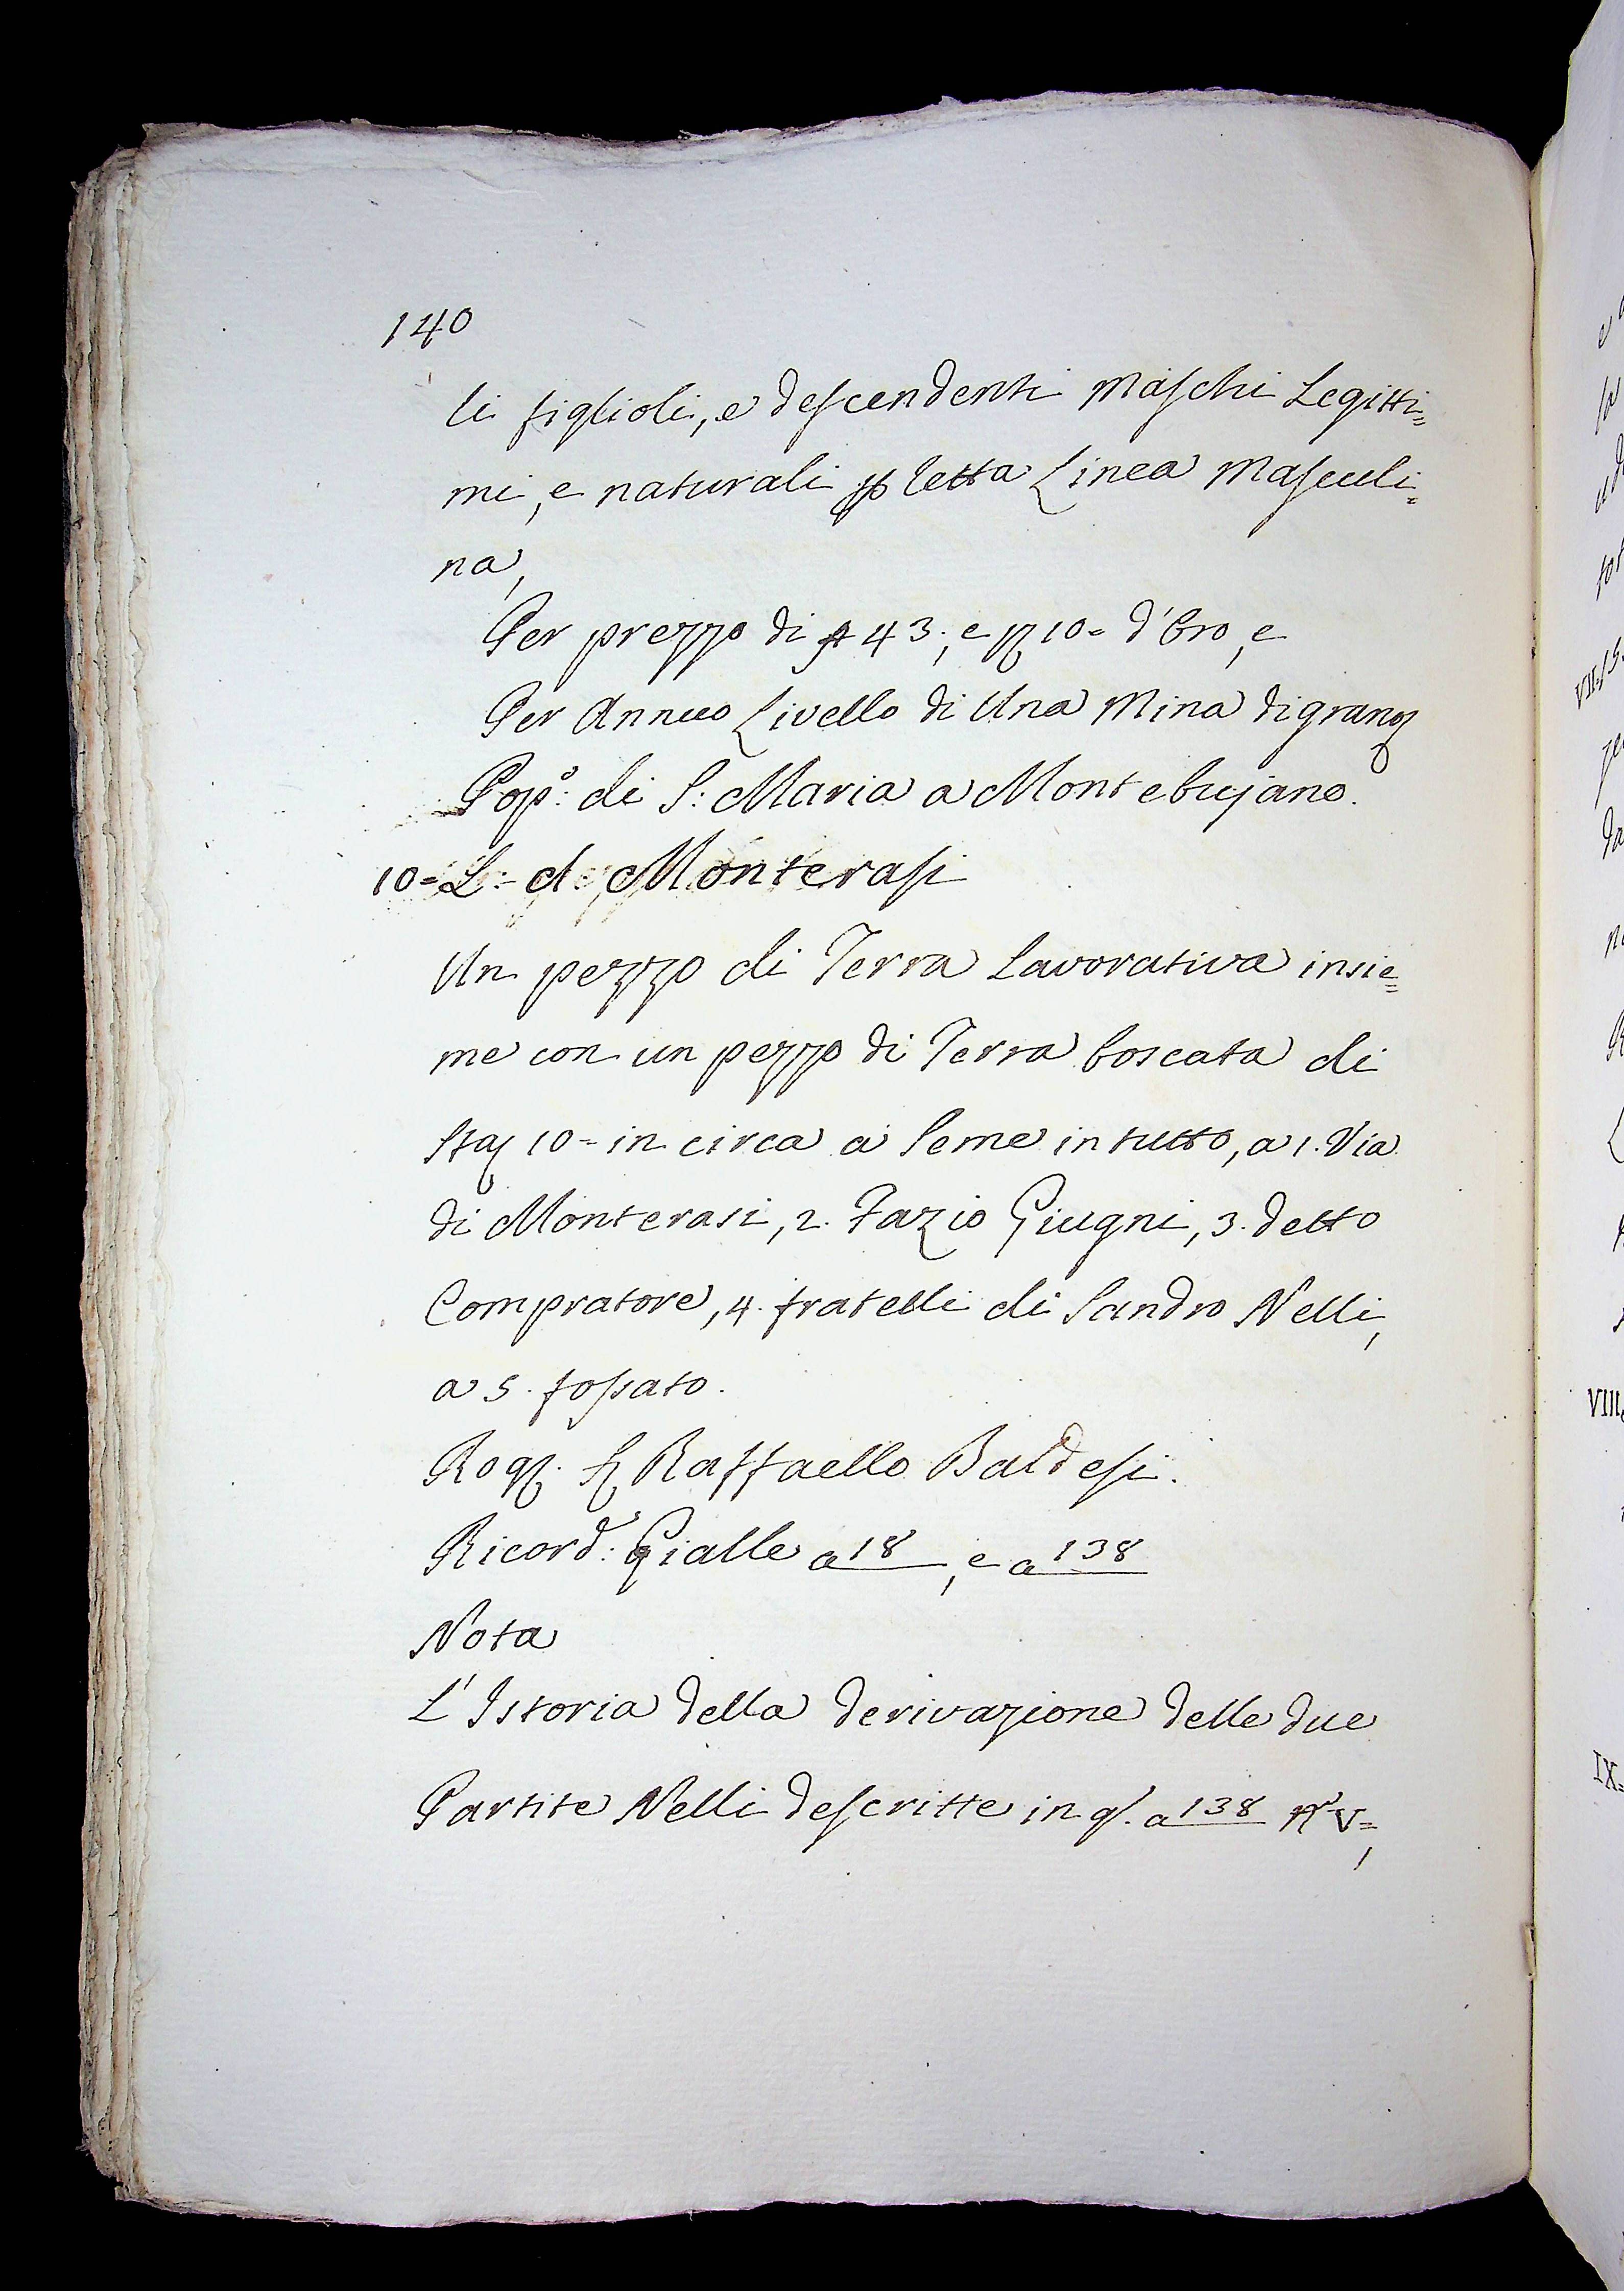 140
li figlioli, e descendenti Maschi Legitti=
mi, e naturali p letta Linea Masculi=
na,
Per prezzo di 43:, e 10= d'Oro, e
Per Annuo Livello di Una Mina di grano
Pop.o: di S: Maria a Montebujano.
10= L: d Monterasi
Un pezzo di Terra Lavorativa insie=
me con un pezzo di Terra boscata di
Sta 10= in circa a Seme in tutto, a 1. Via
di Monterasi, 2. Fazio Giugni, 3. detto
Compratore, 4. fratelli di Sandro Nelli,
a 5. fossato.
Rog. Raffaello Baldesi.
Ricord: Gialle a 18, e a 138
Nota
L'Istoria della derivazione delle due
Partite Nelli descritte in q. a 138 N V=,